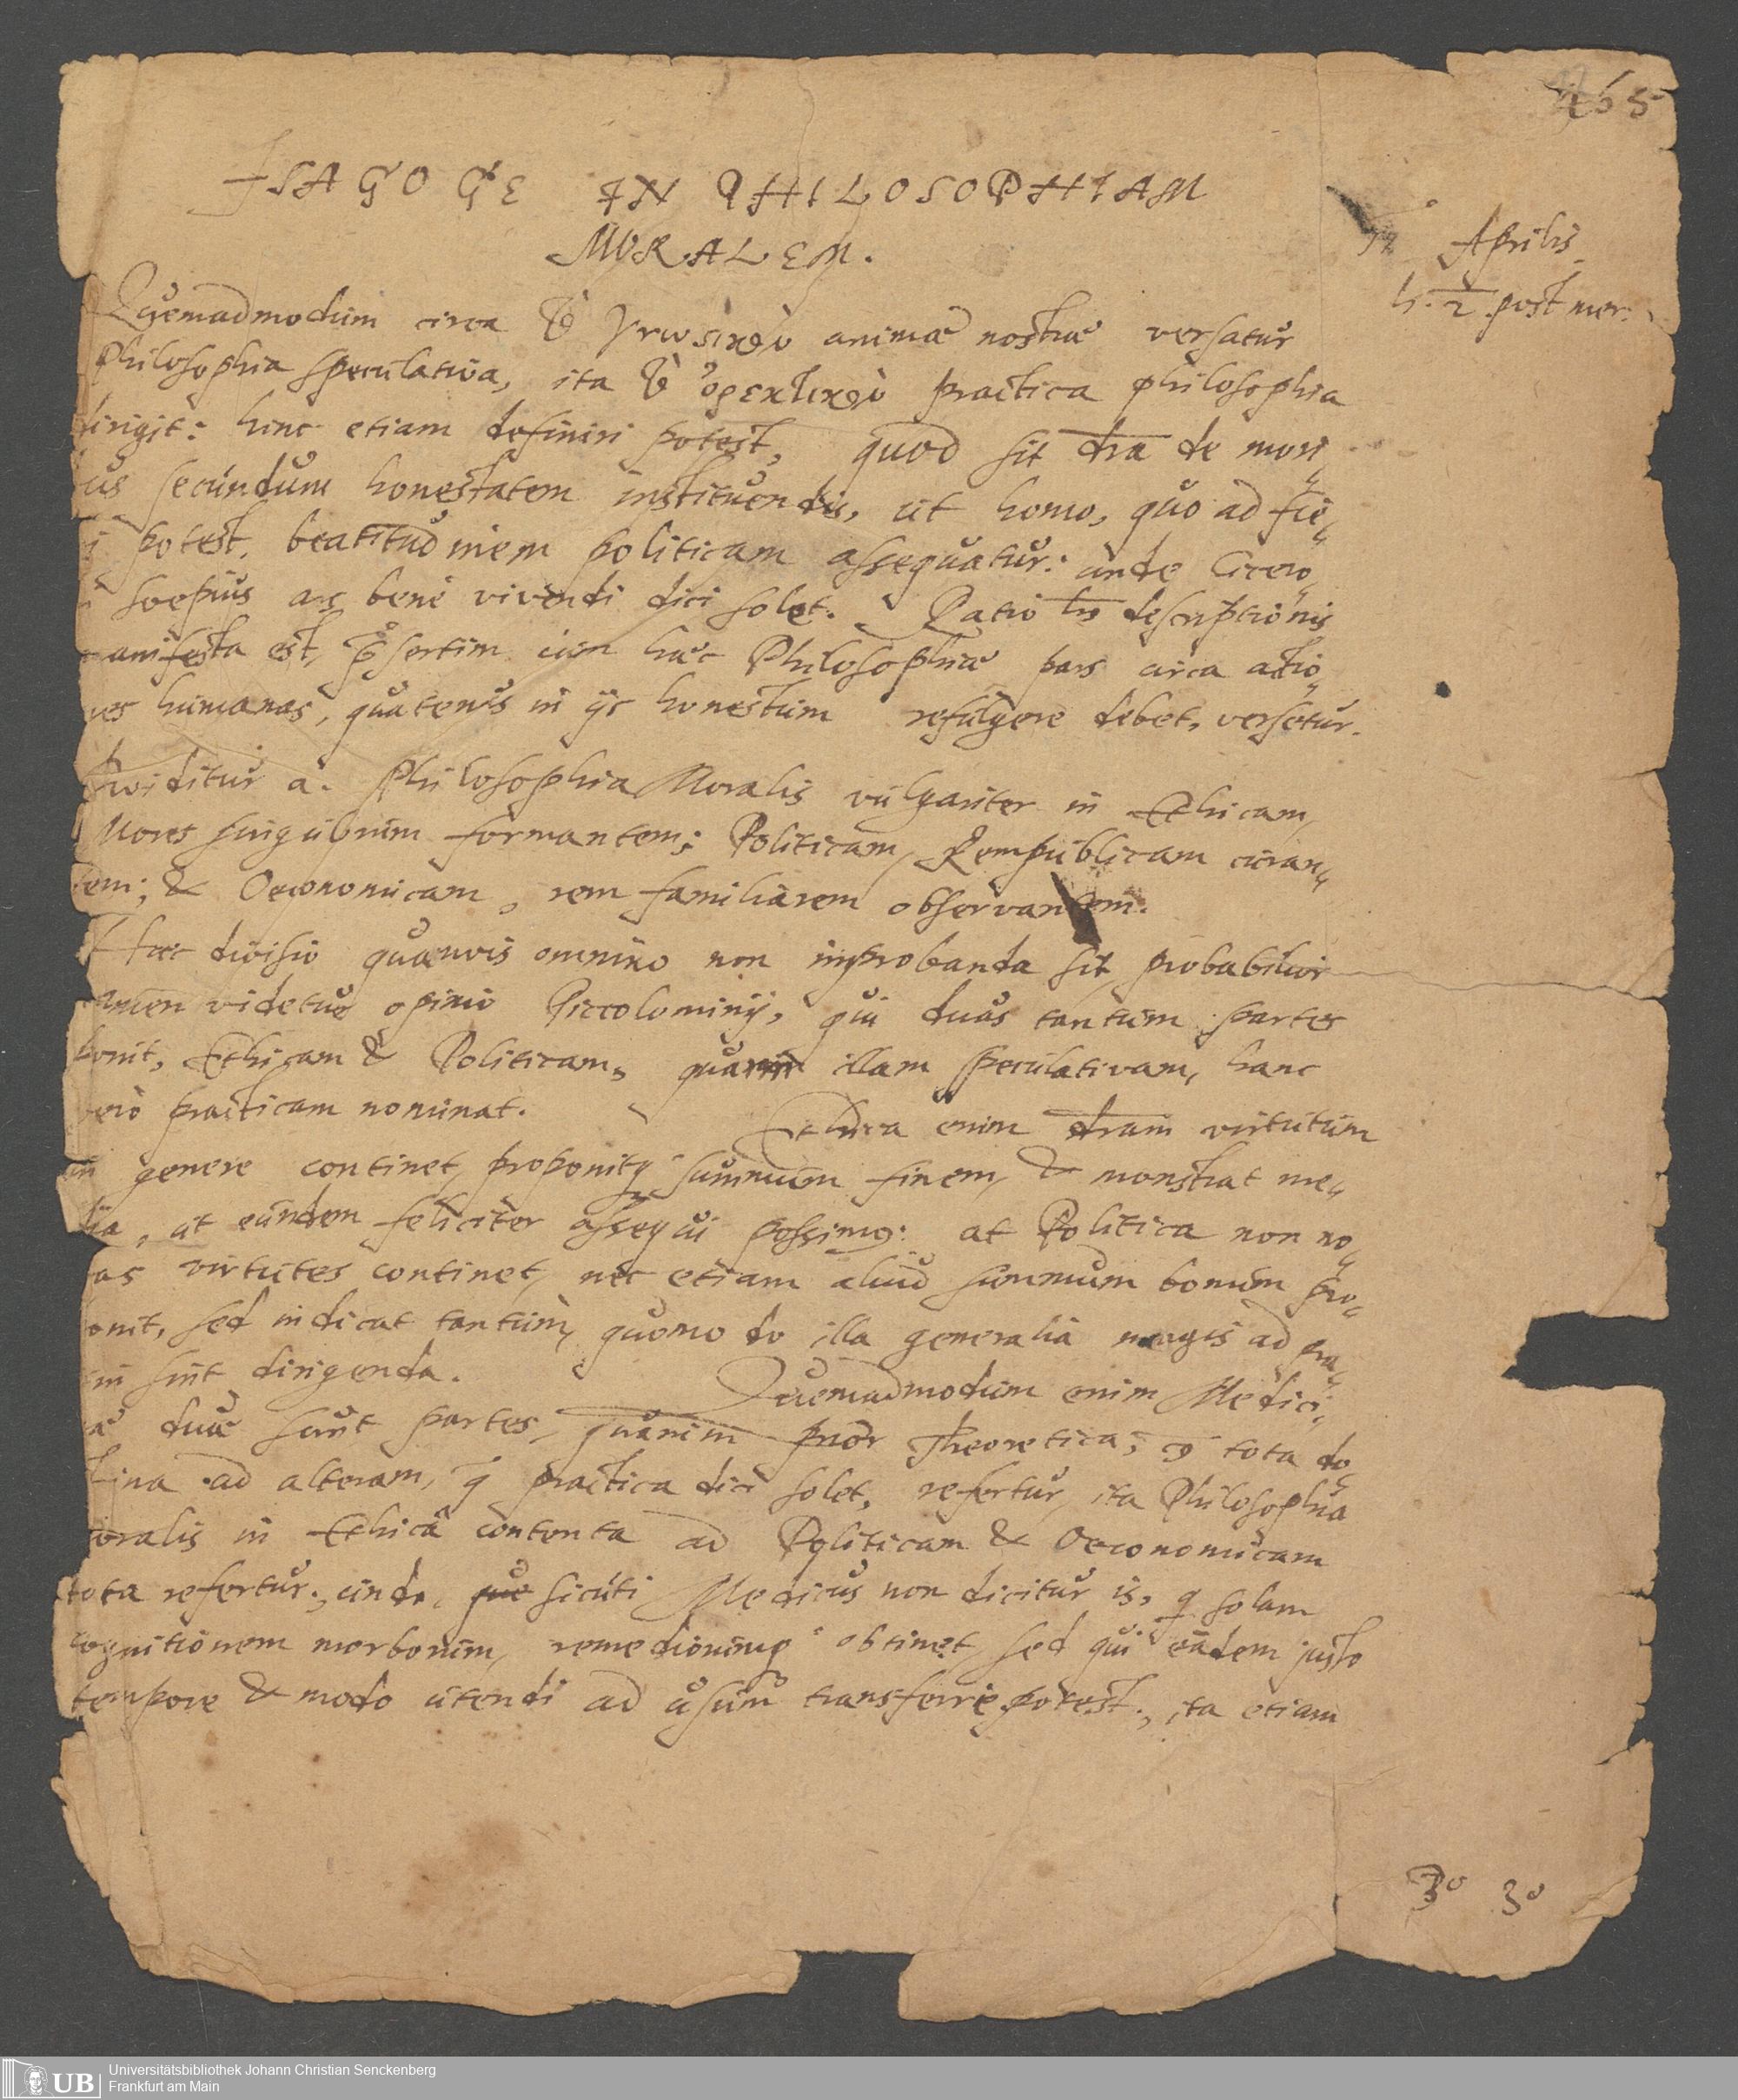 465
ISAGOGE IN PHILOSOPHIAM
MORALEM.
Aprilis
h. 2. post mer.
Quemadmodum circa τὸ γνωστικὸν animæ nostræ versatur
Philosophia speculativa, ita τὸ ὀρεκτικὸν practica philosophia
dirigit: hinc etiam definiri potest, quod sit dra de mori„
us secundum honestatem instituendis, ut homo, quo ad fie„
i potest, beatitudinem politicam assequatur: unde Cicero„
i sæpius ars bene vivendi dici solet. Ratio descriptionis
anifesta est, p̄sertim cum hæc Philosophiæ pars circa actio„
nes humanas, quatenus in ijs honestum refulgere debet, versetur.
Dividitur a. Philosophia Moralis vulgariter in Ethicam,
Mores singulorum formantem; Politicam, Rempublicam curan„
tem; & Oeconomicam, rem familiarem observantem.
Hæc divisio quamvis omnino non improbanda sit, probabilior
amen videtur opinio Piccolominij, qui duas tantum partes
ponit, Ethicam & Politicam, quarum illam speculativam, hanc
vero practicam nominat.
Ethica enim dram virtutum
in genere continet, proponitq summum finem, & monstrat me„
dia, ut eundem feliciter assequi possimus: at Politica non no„
as virtutes continet, nec etiam aliud summum bonum pro„
onit, sed indicat tantum, quomodo illa generalia magis ad pra„
in sint dirigenda.
Quemadmodum enim Medici„
æ duæ sunt partes, quarum prior Theoretica, tota do„
trina ad alteram, q̄ practica dici solet, refertur, ita Philosophia
oralis in Ethicâ contenta ad Politicam & Oeconomicam
tota refertur; unde, que sicuti Medicus non dicitur is, q solam
cognitionem morborum, remediorumq obtinet, sed qui eādem justo
tempore & modo utendi ad usum transferre potest, ita etiam
30 30
UB
Universitätsbibliothek Johann Christian Senckenberg
Frankfurt am Main